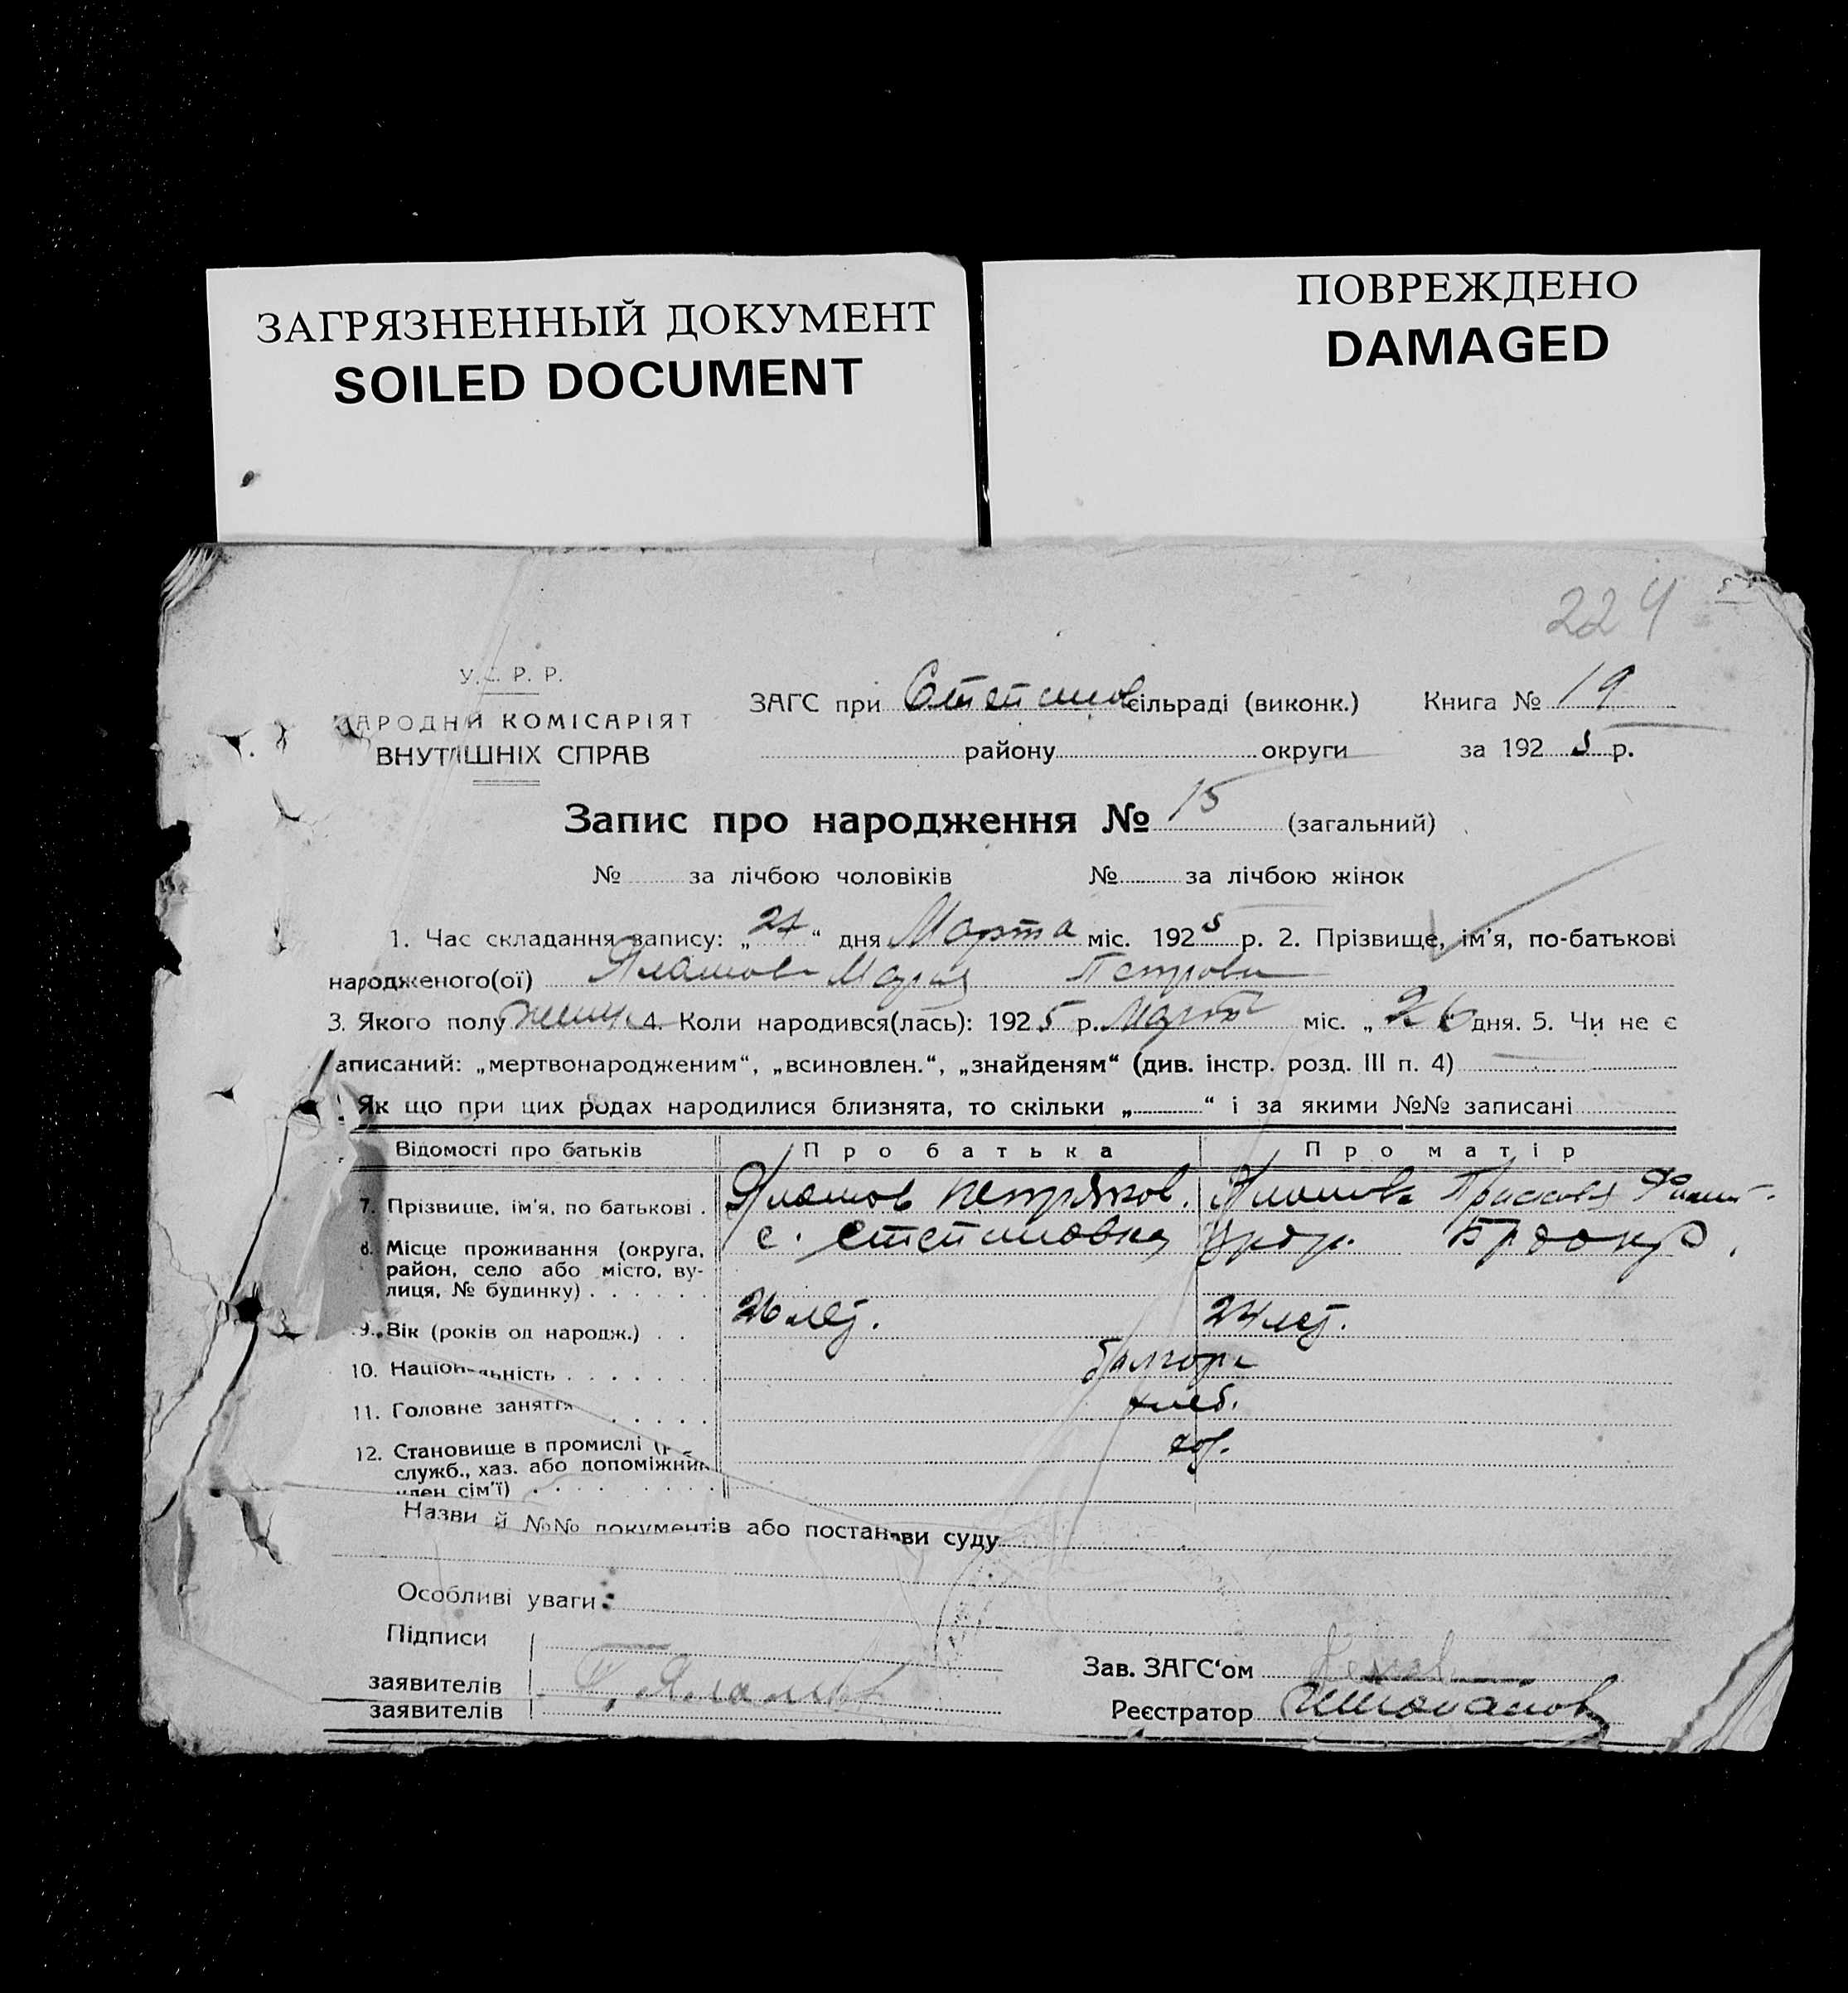 ЗАГРЯЗНЕННЫЙ ДОКУМЕНТ
SOILED DOCUMENT
ПОВРЕЖДЕНО
DAMAGED
224
У.С.Р.Р.
НАРОДНИЙ КОМІСАРІЯТ
ВНУТРІШНІХ СПРАВ
ЗАГС при Степанов сільраді (виконк.) Книга № 19
району округи за 1925 р.
Запис про народження № 15 (загальний)
№ за лічбою чоловіків № за лічбою жінок
1. Час складання запису: „27“ дня Марта міс. 1925 р. 2. Прізвище, ім'я, по-батькові
народженого(ої) Мария Петрова
3. Якого полу 4. Коли народився(лась): 1925 р. Март міс. „26 дня. 5. Чи не є
аписаний: „мертвонародженим“, „всиновлен.“, „знайденям“ (див. інстр. розд. III п. 4)
Як що при цих родах народилися близнята, то скільки „ “ і за якими №№ записані
Відомості про батьків Про батька Про матір
7. Прізвище, ім'я, по батькові .
8. Місце проживання (округа, с. Степановка
район, село або місто, ву-
лиця, № будинку) . . . . . .
9. Вік (років од народж.) . . 26 лет. 24 лет.
10. Національність . . . . . . . болгоре
11. Головне заняття . . . . . хлеб.
12. Становище в промислі
служб., хаз. або допоміжний
член сім'ї) . . . . . . . . .
Назви й №№ документів або постанови суду
Особливі уваги:
Підписи
заявителів
заявителів
Зав. ЗАГС‘ом
Реєстратор